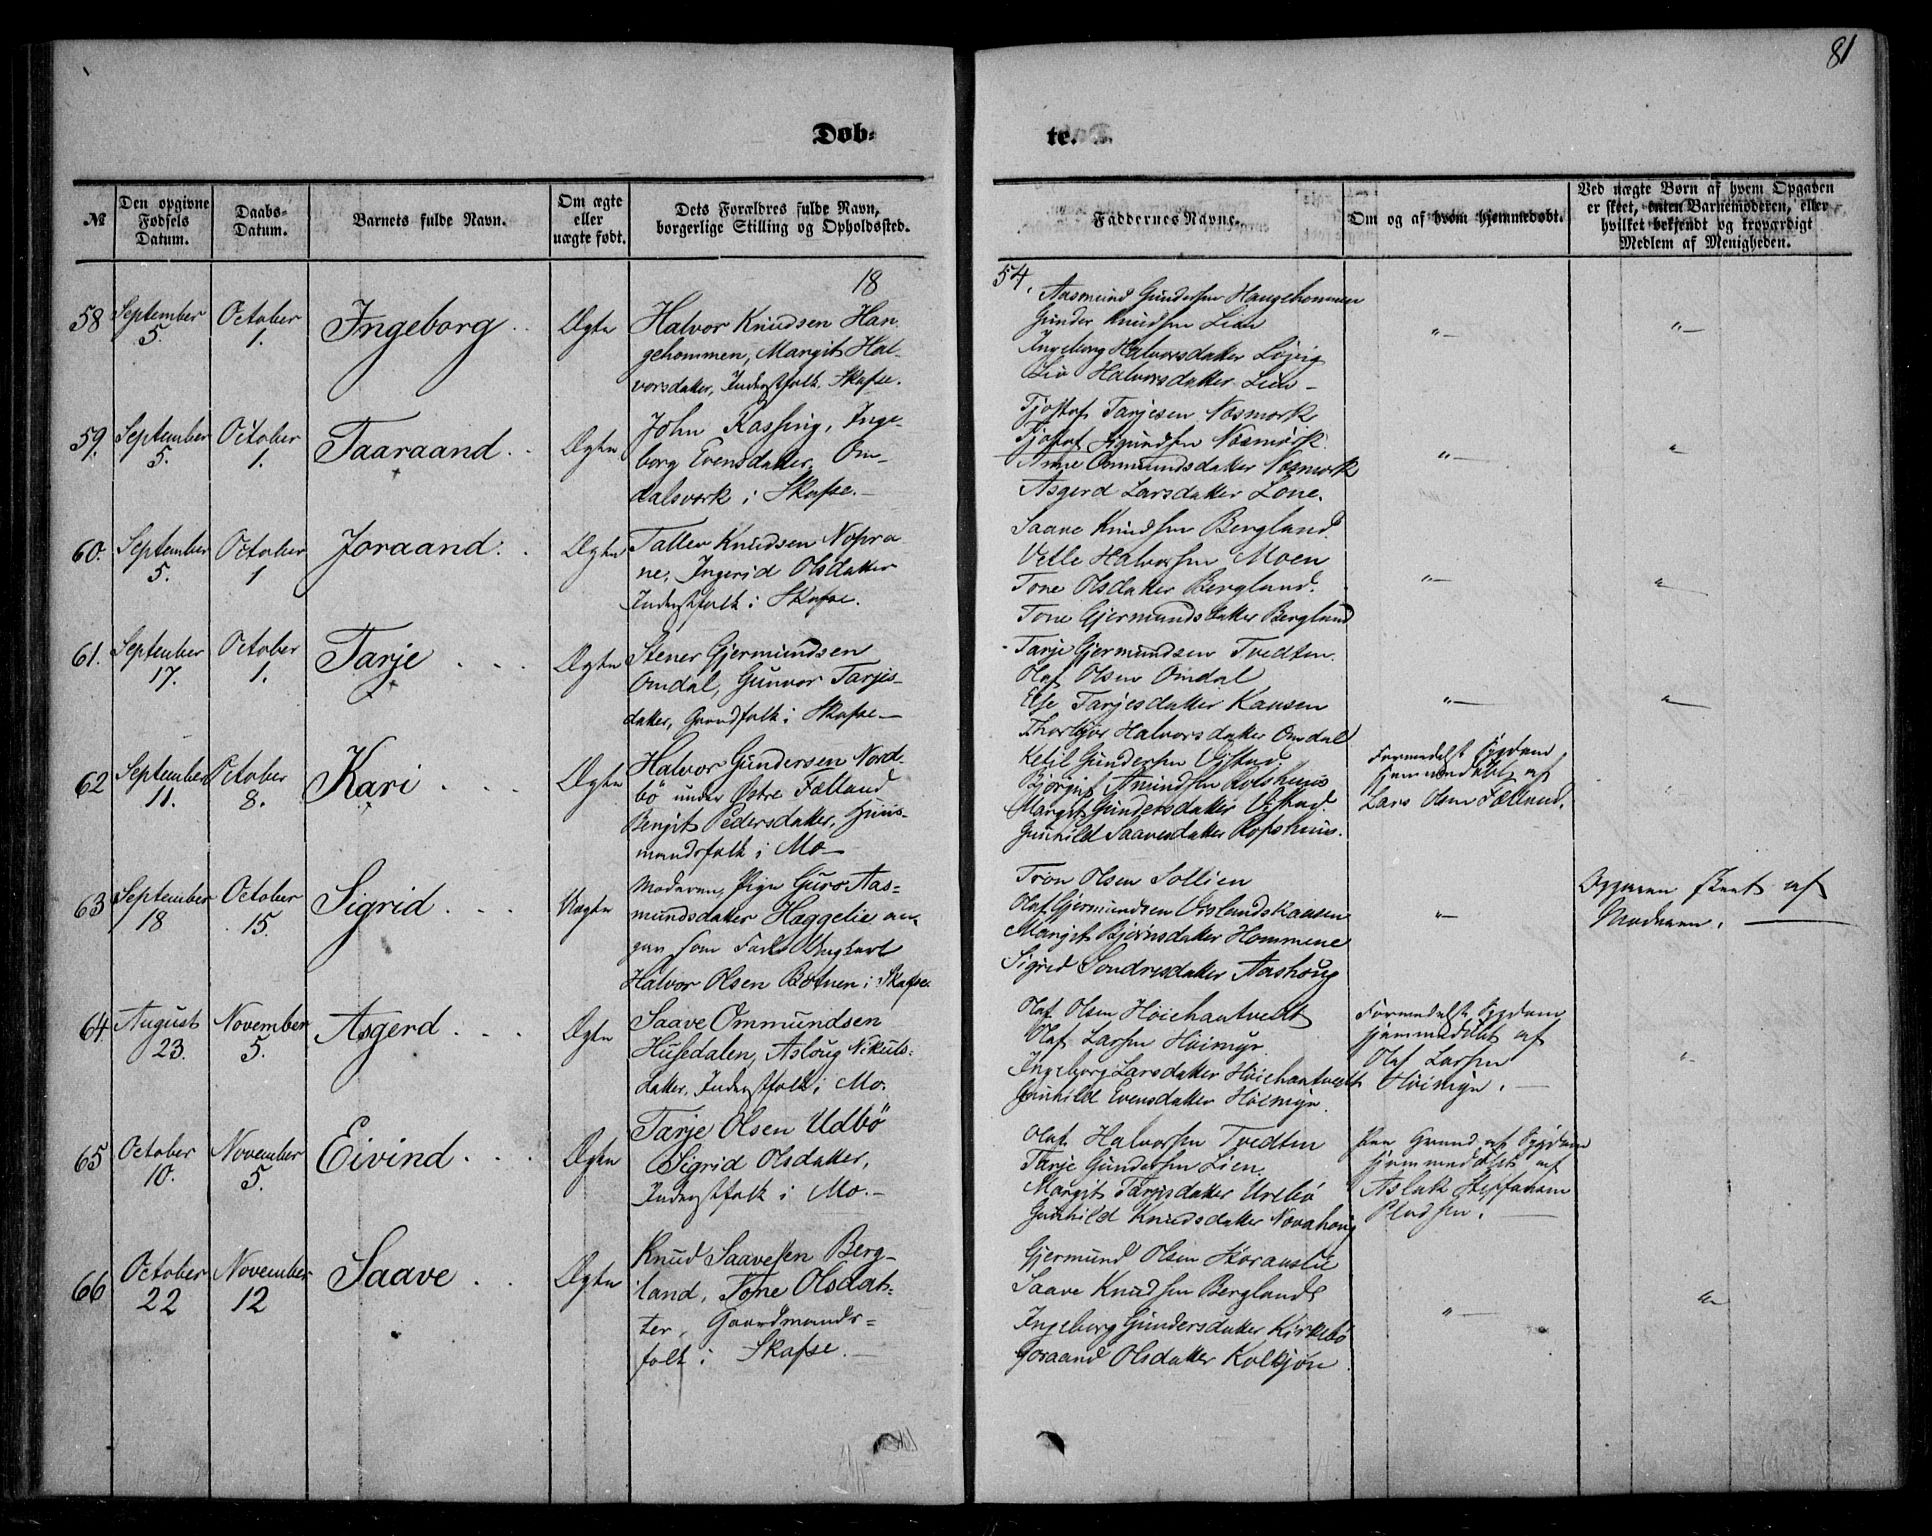 81
Døb-
te.
№
Den opgivne Fødsels Datum.
Daabs-Datum.
Barnets fulde Navn.
Om ægte eller uægte født.
Dets Forældres fulde Navn, borgerlige Stilling og Opholdssted.
Faddernes Navne.
Om og af hvem hjemmedøbt.
Ved uægte Børn af hvem Opgaven er skeet, enten Barnemoderen, eller hvilket bekjendt og troværdigt Medlem af Menigheden.
18
54.
58 September 5. October 1. Ingeborg Ægte
Halvor Knudsen Han-
gehommen, Margit Hal-
vorsdatter, Inderstfolk. Skafse.
Aasmund Gundersen Hangehommen
Gunder Knudsen Lien
Ingeborg Halvorsdatter
Liv Halvorsdatter Lien
"—
"—
59. September 5. October 1. Taaraand Ægte
John Kassing, Inge-
borg Evensdatter, Om-
dalsverk i Skafse.
Tjostof Tarjesen Næsmork
Tjostof Næsmork
Anne Ommundsdatter Næsmork
Asgerd Larsdatter Lone.
"—
"
60. September 5. October 1 Joraand Ægte
Tallev Knudsen Nopra
ne, Ingerid Olsdatter
Inderstfolk i Skafse.
Saave Knudsen Bergland
Vetle Halvorsen Moen
Tone Olsdatter Bergland.
Tone Gjermundsdatter Bergland
"—
"
61. September 17. October 1. Tarje Ægte
Stener Gjermundsen
Omdal, Gunvor Tarjes-
datter, Gaardfolk i Skafse
Tarje Gjermundsen Tvedten.
Olaf Olsen Omdal
Else Tarjesdatter Kaasen
Thorbjør Halvorsdatter Omdal
"—
"
62 September 11. October 8. Kari Ægte
Halvor Gundersen Nord-
bö under Østre Fælland
Bergit Pedersdatter, Huus-
mandsfolk i Mo
Ketil Gundersen Vistad
Amundsen Rofshuus
Margit Gundersdatter Vistad.
Gunhild Saavesdatter Rofshuus.
Formedelst Sygdom
hjemmedøbt af
Lars Olsen Fælland.
63 September 18 October 15. Sigrid Uægte
Moderen, Pige Guro Aas-
mundsdatter Haggelie an-
gav som Fader Ungkarl
Halvor Olsen Botnen i Skafse.
Tron Olsen Sollien
Olaf Gjermundsen Øvslandskaasen
Margit Bjørnsdatter Hommene
Sigrid Sondresdatter Aashoug
"—
Opgaven skeet af
Moderen.
64 August 23. November 5. Asgerd Ægte
Saave Ommundsen
Husedalen, Asloug Nikuls-
datter, Inderstfolk i Mo.
Olaf Olsen Hoichantvedt
Olaf Larsen Höimyr.
Ingeborg Larsdatter Hoichantvedt
Gunhild Evensdatter Höimyr.
Formedelst Sygdom
hjemmedøbt af
Olaf Larsen
Höimyr.
"
65 October 10. November 5. Eivind Ægte
Tarje Olsen Udbö
Sigrid Olsdatter,
Inderstfolk i Mo.
Olaf Halvorsen Tvedten
Tarje Gundersen Lien.
Margit Tarjesdatter Urebö
Gunhild Knudsdatter
Paa Grund af Sygdom
hjemmedøbt af
Aslak
Pladsen.
66 October 22 November 12 Saave Ægte
Knud Saavesen Berg-
land, Tone Olsdat-
ter, Gaardmands-
folk i Skafse.
Gjermund Olsen
Saave Knudsen Bergland
Ingeborg Gundersdatter Kirkebö
Joraand Olsdatter Kolkjøn.
"—
"